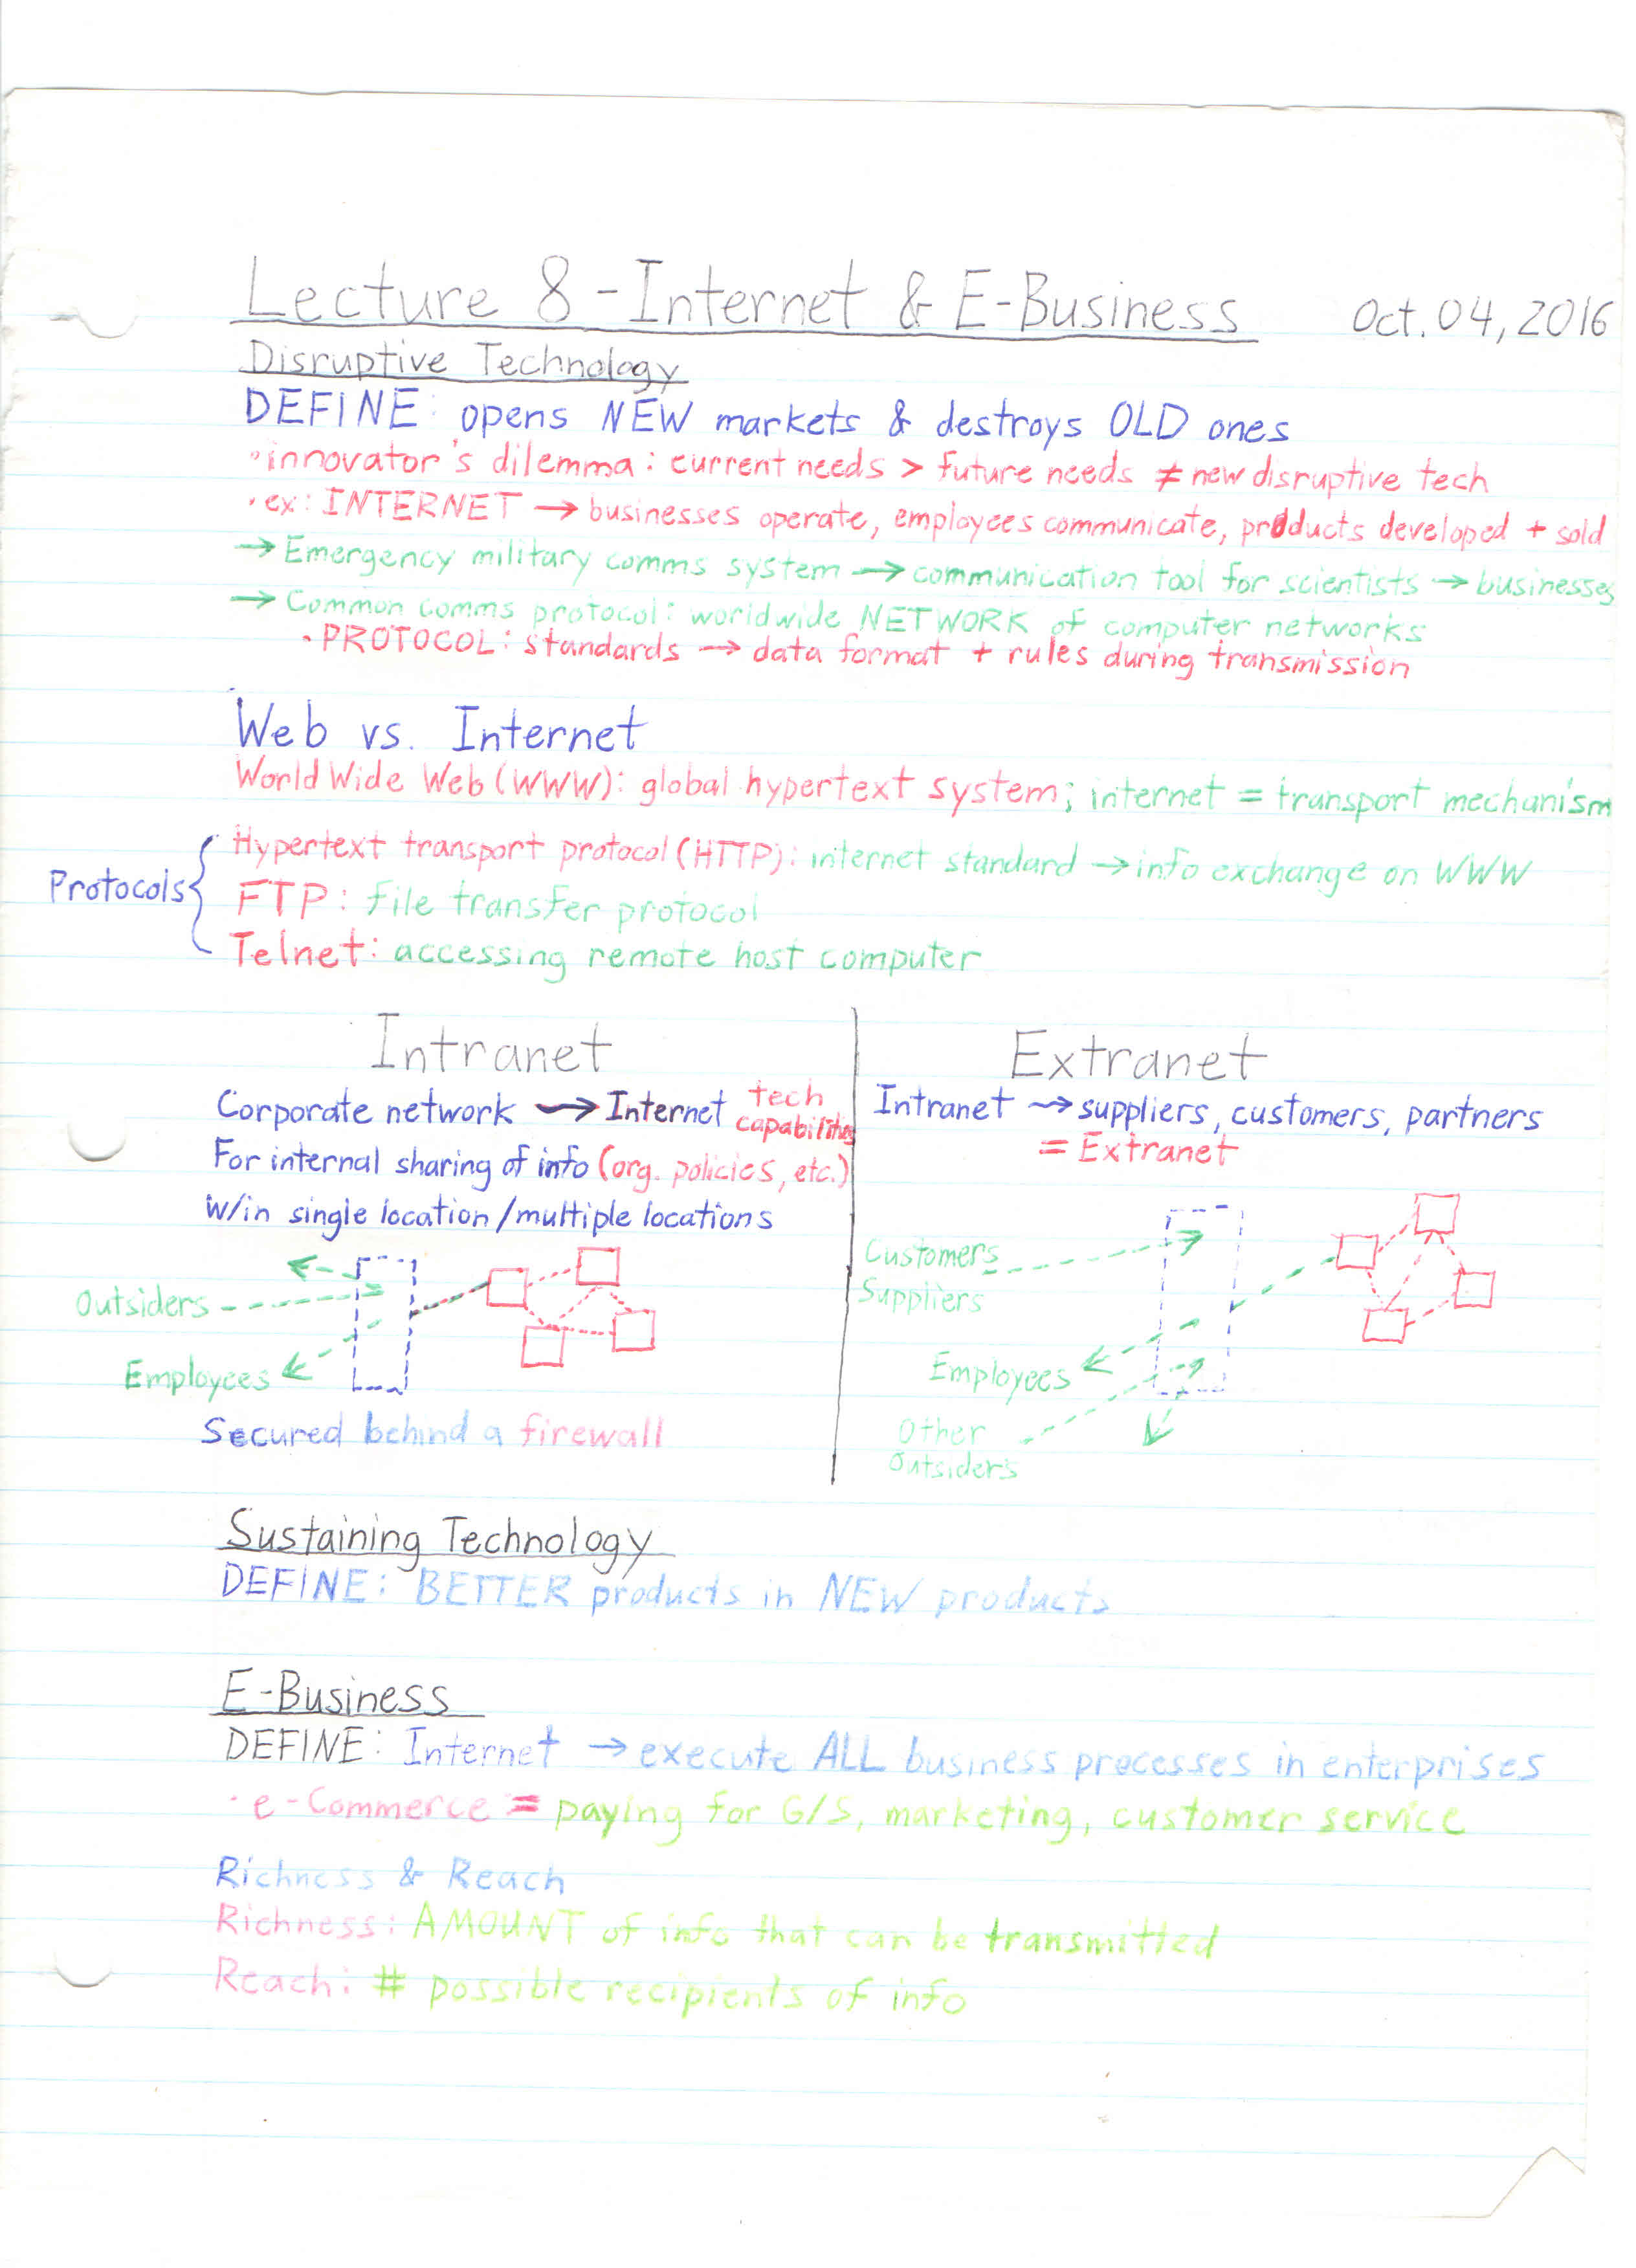 Lecture 8 - Internet & E-Business Oct. 04, 2016
Disruptive Technology
DEFINE: opens NEW markets & destroys OLD ones
• innovator's dilemma: current needs > future needs ≠ new disruptive tech
• ex: INTERNET → businesses operate, employees communicate, products developed + sold
→ Emergency military comms system → communication tool for scientists → businesses
→ Common comms protocol: worldwide NETWORK of computer networks
• PROTOCOL: standards → data format + rules during transmission
Web vs. Internet
World Wide Web (WWW): global hypertext system; internet = transport mechanism
Protocols {
Hypertext transport protocol (HTTP): internet standard → info exchange on WWW
FTP: file transfer protocol
Telnet: accessing remote host computer
Intranet
Corporate network → Internet tech capabilities
For internal sharing of info (org. policies, etc.)
W/in single location/multiple locations
Outsiders
Employees
Secured behind a firewall
Extranet
Intranet → suppliers, customers, partners
= Extranet
Customers
Suppliers
Employees
Other
Outsiders
Sustaining Technology
DEFINE: BETTER products in NEW products
E-Business
DEFINE: Internet → execute ALL business processes in enterprises
• e-Commerce = paying for G/S, marketing, customer service
Richness & Reach
Richness: AMOUNT of info that can be transmitted
Reach: # possible recipients of info